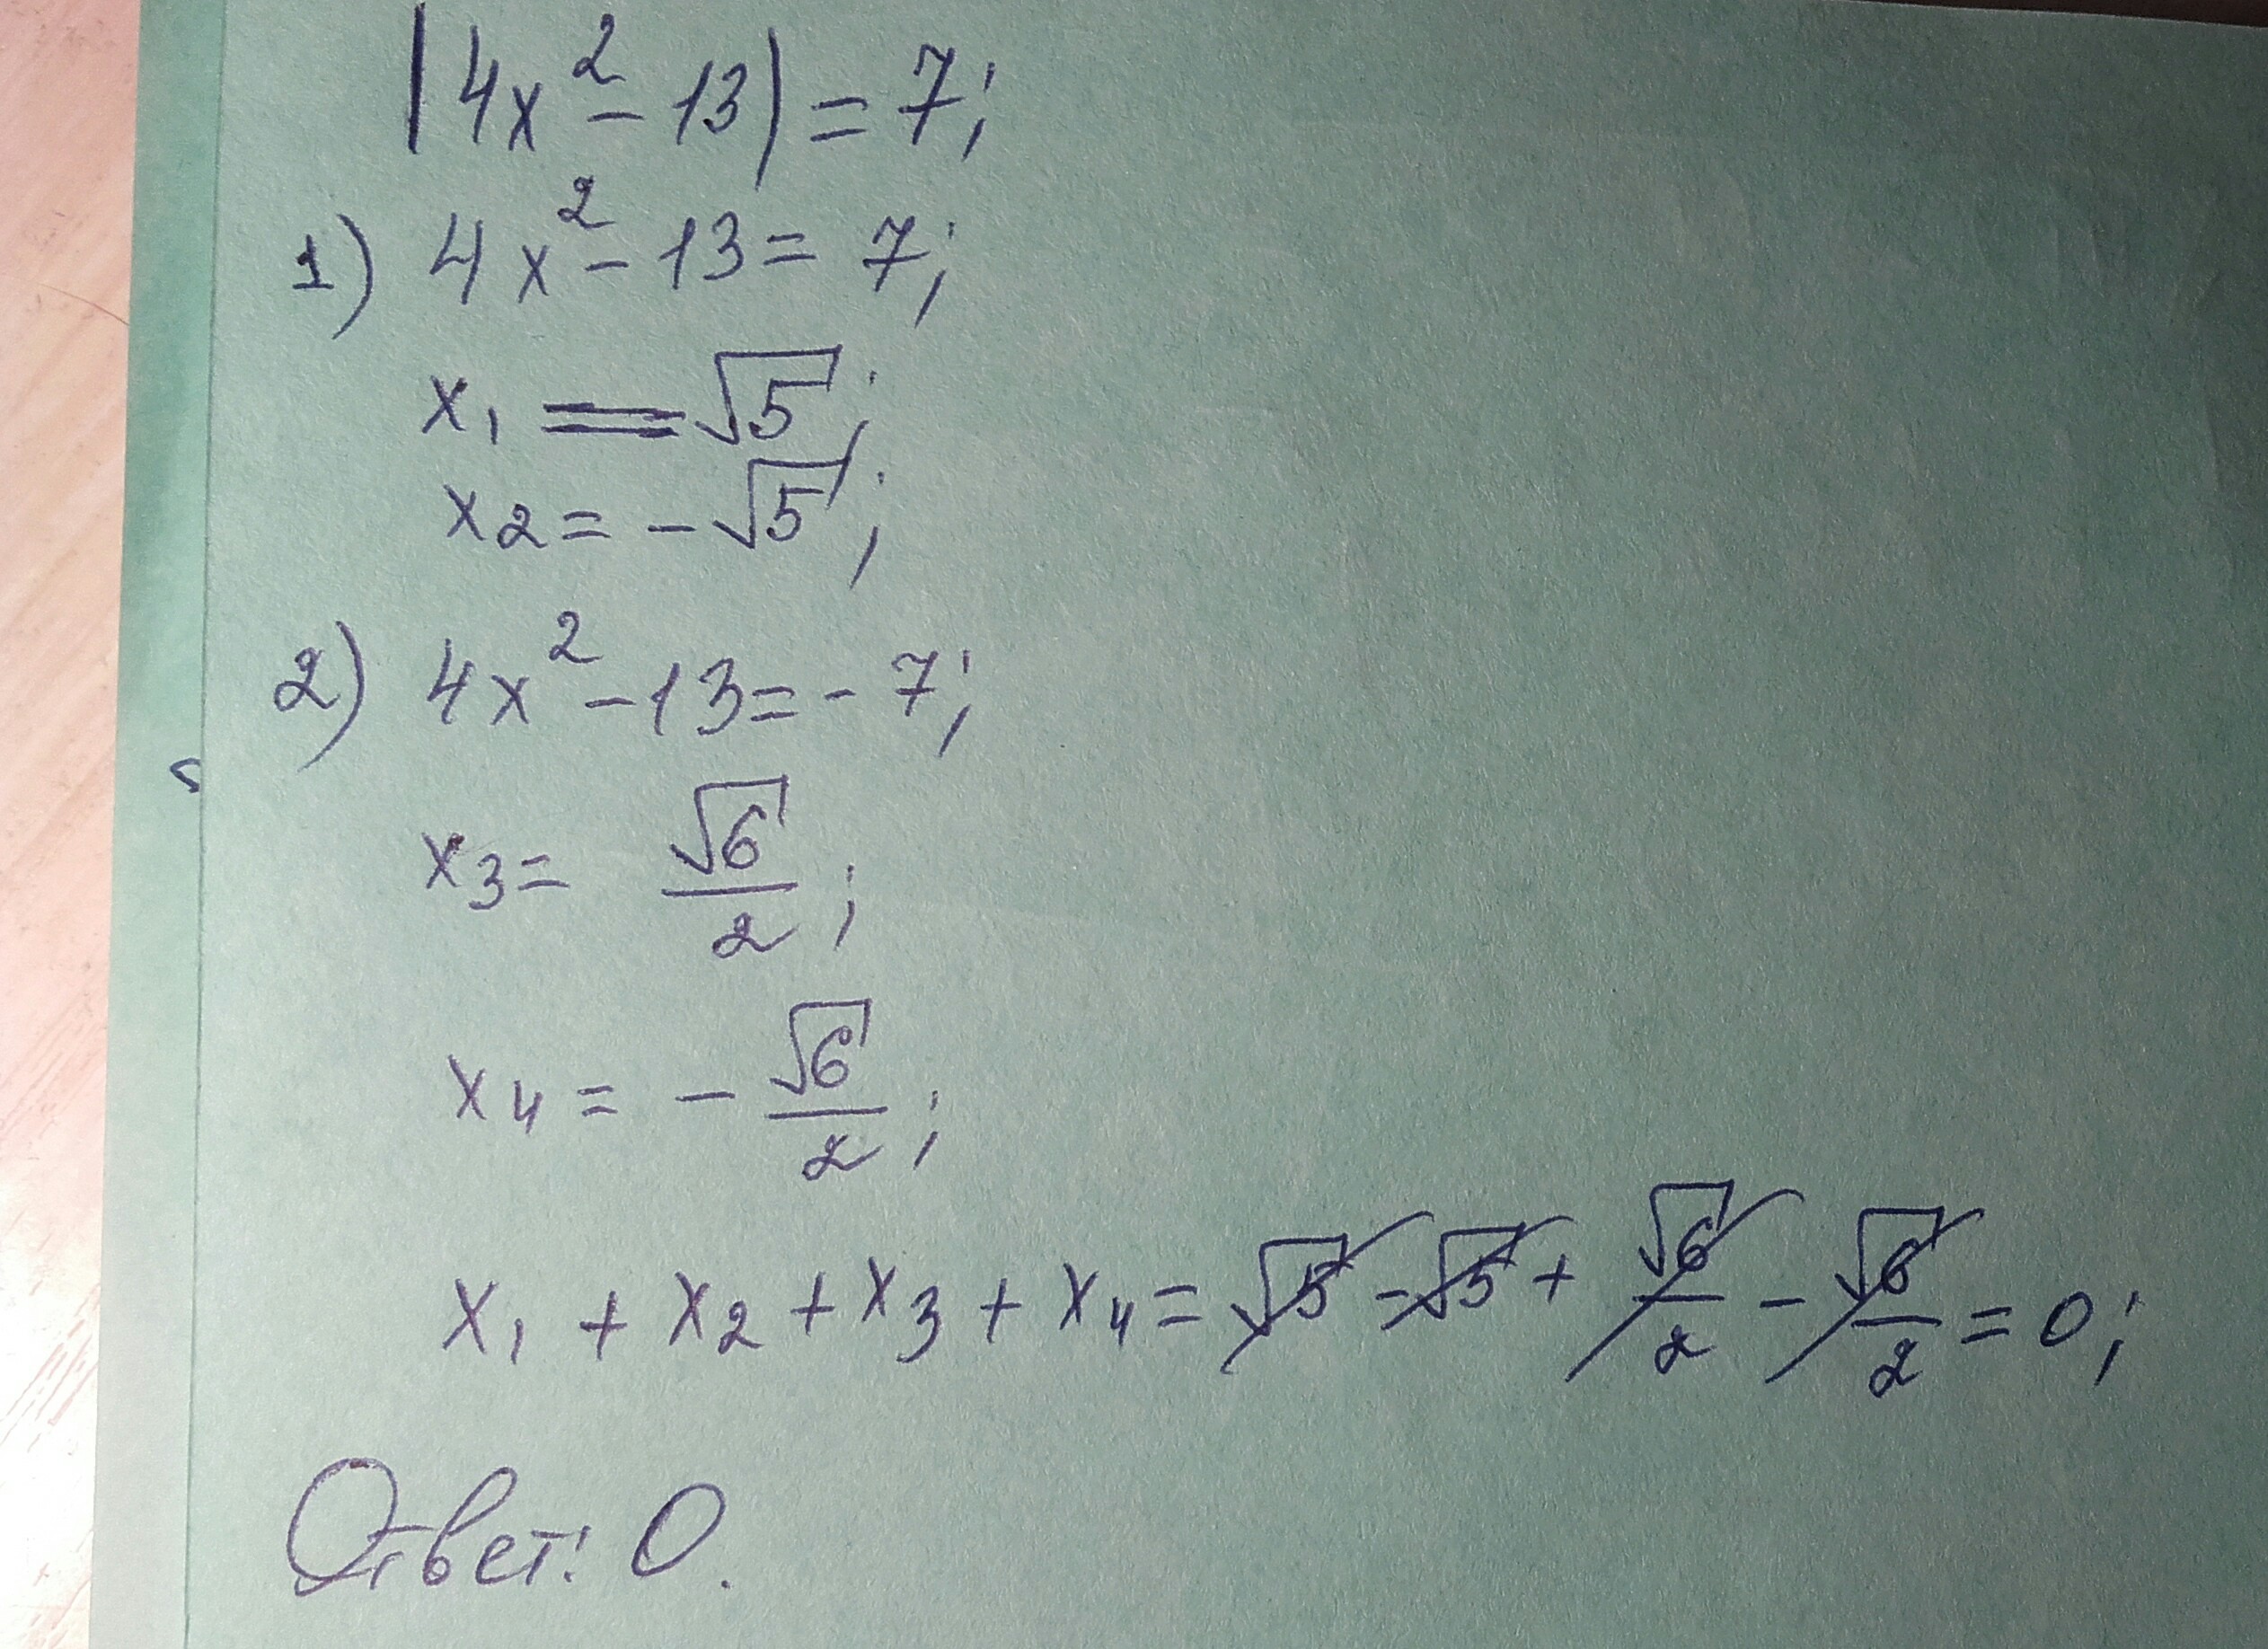 |4x² - 13| = 7;
1) 4x² - 13 = 7;
x₁ = √5;
x₂ = -√5;
2) 4x² - 13 = -7;
x₃ = √6/2;
x₄ = -√6/2;
x₁ + x₂ + x₃ + x₄ = √5 - √5 + √6/2 - √6/2 = 0;
Ответ: 0.